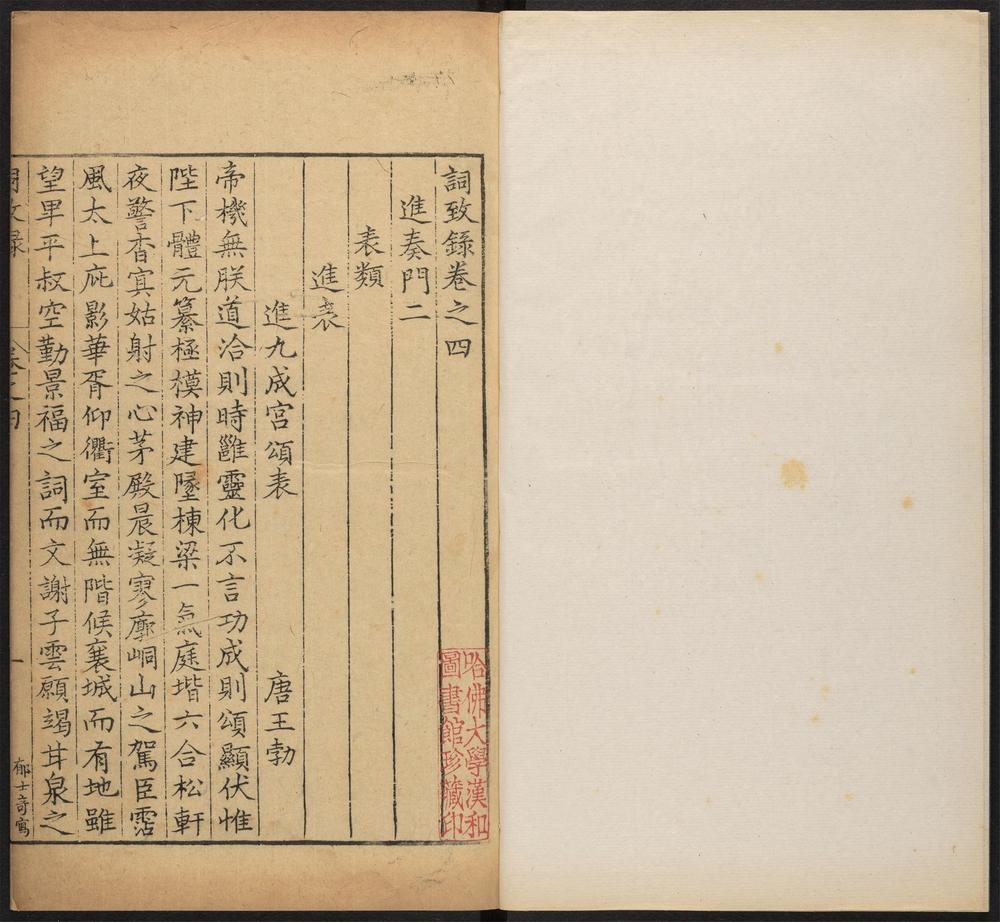 詞致錄卷之四
進奏門二
表類
進表
進九成宮頌表　唐王勃
帝機無朕道洽則時雝靈化不言功成則頌顯伏惟
陛下體元纂極模神建墜棟梁一氣庭堦六合松軒
夜警杳寘姑射之心茅殿晨凝寥廓峒山之駕臣霑
風太上庇影華胥仰衢室而無階候襄城而有地雖
望畢平叔空勤景福之詞而文謝子雲願竭甘泉之
詞致錄　卷之四　一
郁士奇寫
哈佛大學漢和
圖書館珍藏印